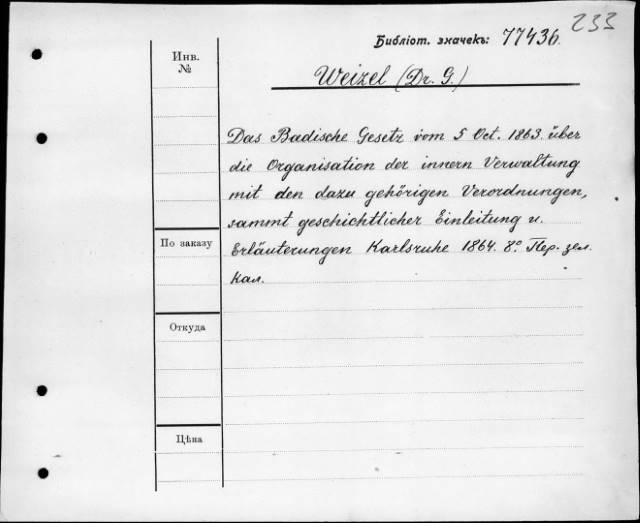 233
Библіот. значекъ: 77436.
Инв.
№
Weizel (Dr. G.)
Das Badische Gesetz vom 5 Oct. 1863 über
die Organisation der innern Verwaltung
mit den dazu gehörigen Verordnungen,
sammt geschichtlicher Einleitung u.
По заказу
Erläuterungen Karlsruhe 1864. 8.° Пер. зел.
кал.
Откуда
Цѣна